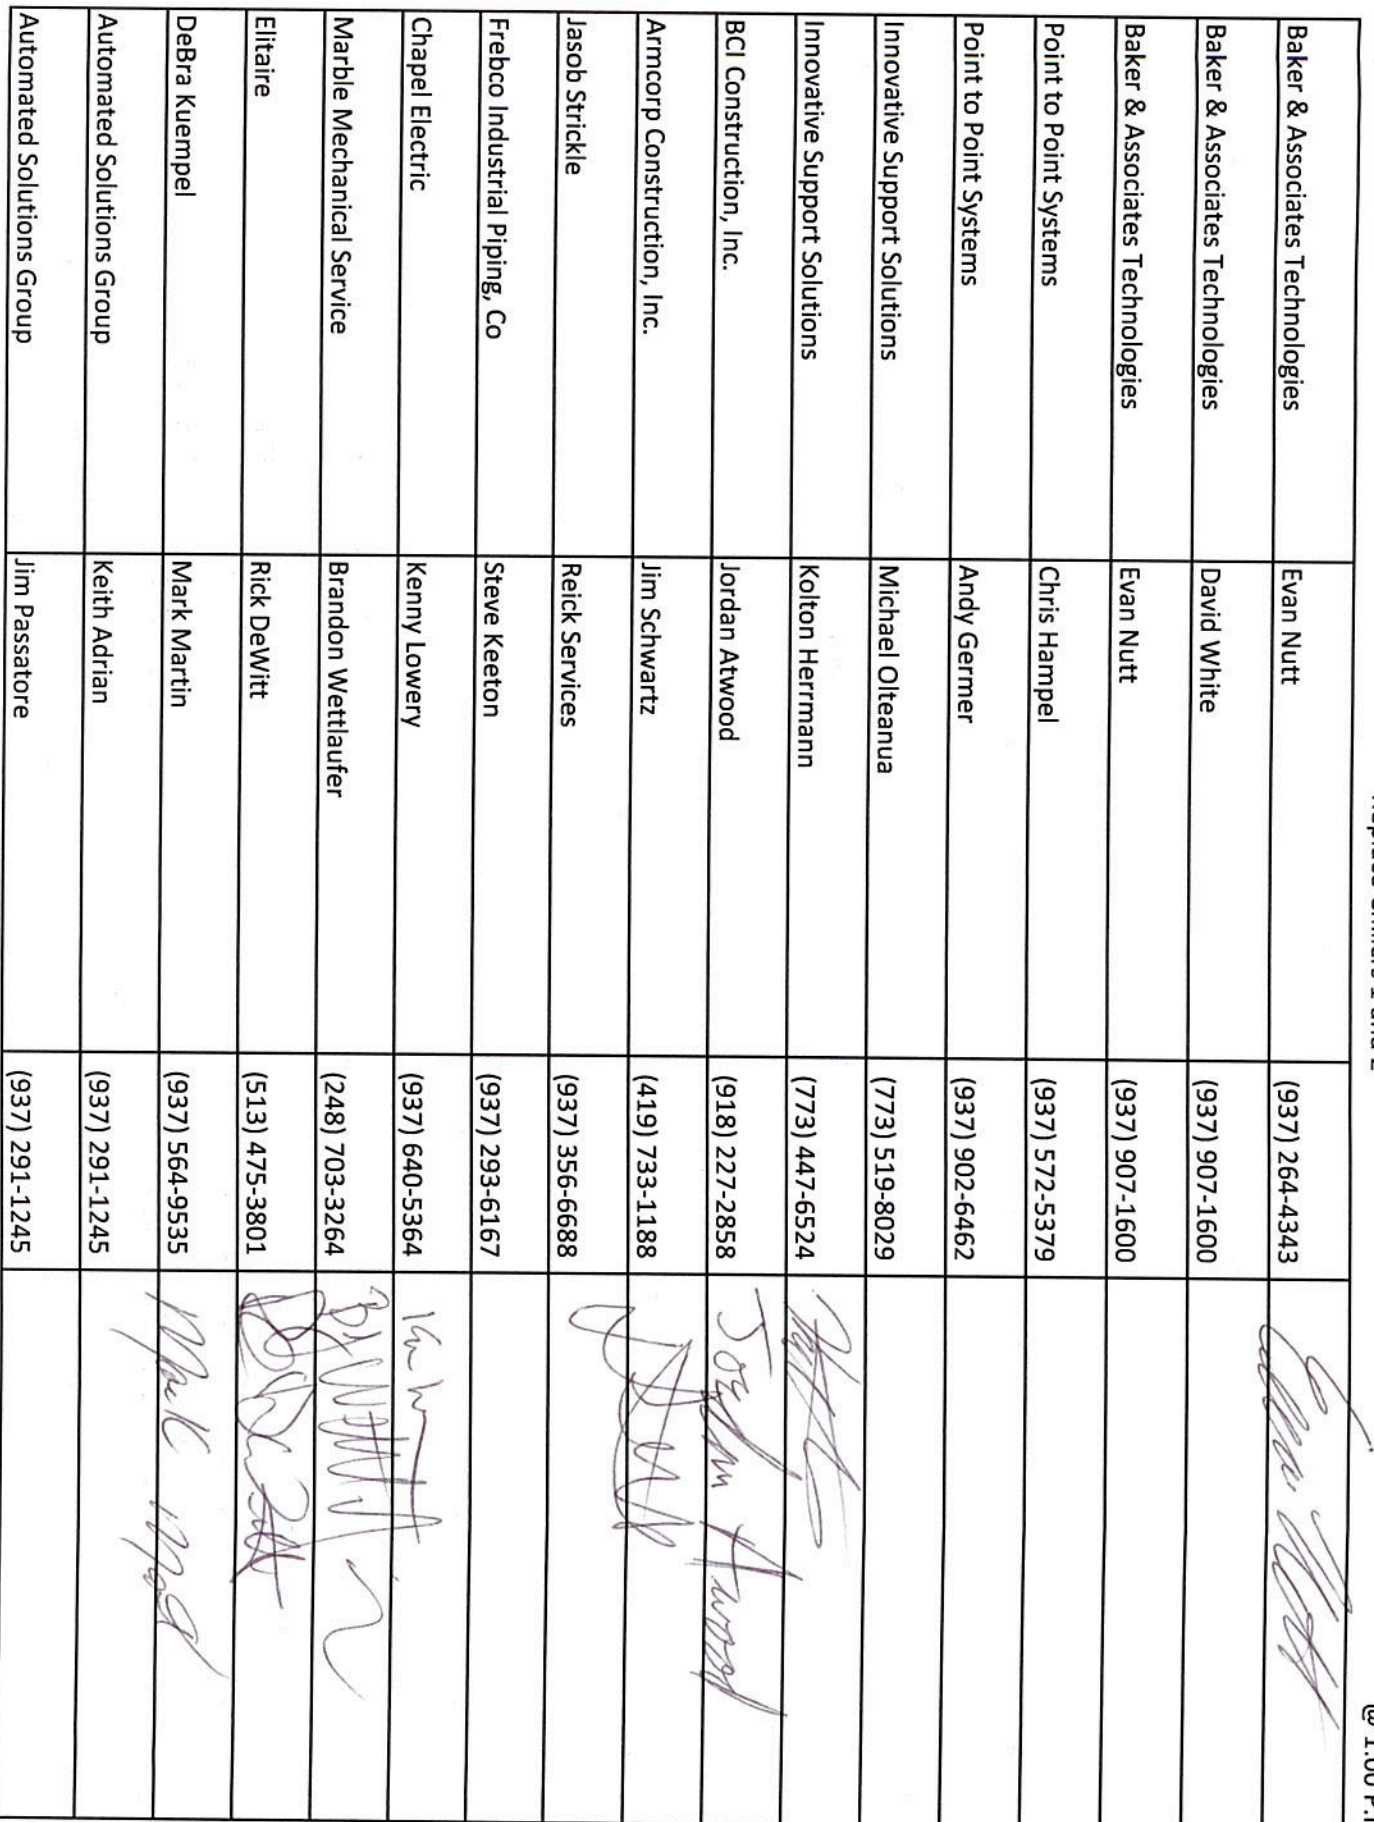 Baker & Associates Technologies Evan Nutt (937) 264-4343
Baker & Associates Technologies David White (937) 907-1600
Baker & Associates Technologies Evan Nutt (937) 907-1600
Point to Point Systems Chris Hampel (937) 572-5379
Point to Point Systems Andy Germer (937) 902-6462
Innovative Support Solutions Michael Olteanua (773) 519-8029
Innovative Support Solutions Kolton Herrmann (773) 447-6524
BCI Construction, Inc. Jordan Atwood (918) 227-2858 Jordan Atwood
Armcorp Construction, Inc. Jim Schwartz (419) 733-1188
Jasob Strickle Reick Services (937) 356-6688
Frebco Industrial Piping, Co Steve Keeton (937) 293-6167
Chapel Electric Kenny Lowery (937) 640-5364
Marble Mechanical Service Brandon Wettlaufer (248) 703-3264
Elitaire Rick DeWitt (513) 475-3801
DeBra Kuempel Mark Martin (937) 564-9535
Automated Solutions Group Keith Adrian (937) 291-1245
Automated Solutions Group Jim Passatore (937) 291-1245